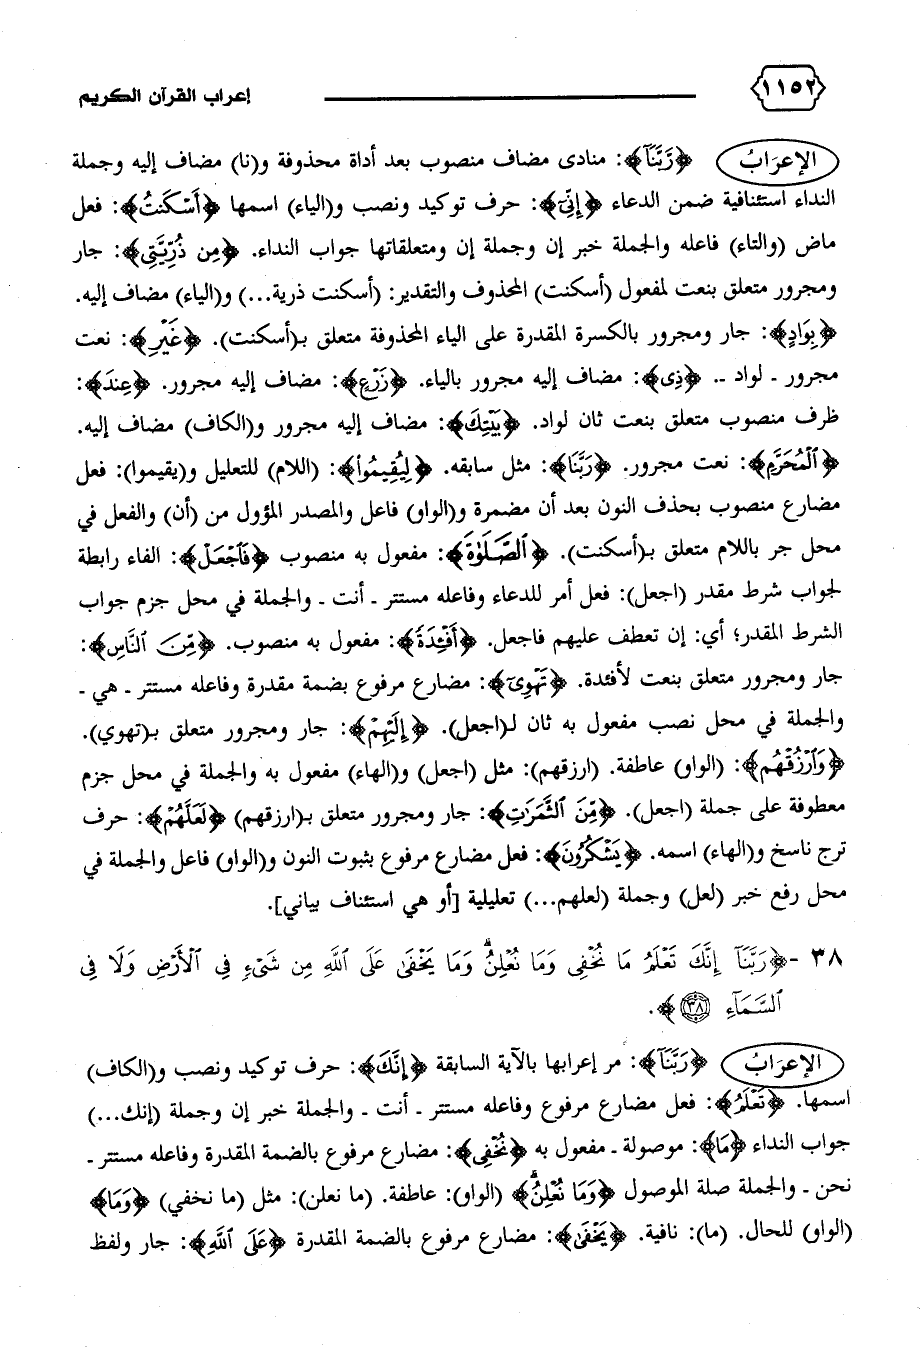 ١١٥٢ إعراب القرآن الكريم
الإعرَابُ ﴿رَّبَّنَآ﴾: منادى مضاف منصوب بعد أداة محذوفة و(نا) مضاف إليه وجملة
النداء استئنافية ضمن الدعاء ﴿إِنِّىٓ﴾: حرف توكيد ونصب و(الياء) اسمها ﴿أَسْكَنتُ﴾: فعل
ماض (والتاء) فاعله والجملة خبر إن وجملة إن ومتعلقاتها جواب النداء. ﴿مِن ذُرِّيَّتِى﴾: جار
ومجرور متعلق بنعت لمفعول (أسكنت) المحذوف والتقدير: (أسكنت ذرية...) و(الياء) مضاف إليه.
﴿بِوَادٍ﴾: جار ومجرور بالكسرة المقدرة على الياء المحذوفة متعلق بـ(أسكنت). ﴿غَيْرِ﴾: نعت
مجرور ـ لواد .. ﴿ذِى﴾: مضاف إليه مجرور بالياء. ﴿زَرْعٍ﴾: مضاف إليه مجرور. ﴿عِندَ﴾:
ظرف منصوب متعلق بنعت ثان لواد. ﴿بَيْتِكَ﴾: مضاف إليه مجرور و(الكاف) مضاف إليه.
﴿ٱلْمُحَرَّمِ﴾: نعت مجرور. ﴿رَبَّنَا﴾: مثل سابقه. ﴿لِيُقِيمُوا۟﴾: (اللام) للتعليل و(يقيموا): فعل
مضارع منصوب بحذف النون بعد أن مضمرة و(الواو) فاعل والمصدر المؤول من (أن) والفعل في
محل جر باللام متعلق بـ(أسكنت). ﴿ٱلصَّلَوٰةَ﴾: مفعول به منصوب ﴿فَٱجْعَلْ﴾: الفاء رابطة
لجواب شرط مقدر (اجعل): فعل أمر للدعاء وفاعله مستتر ـ أنت ـ والجملة في محل جزم جواب
الشرط المقدر؛ أي: إن تعطف عليهم فاجعل. ﴿أَفْـِٔدَةً﴾: مفعول به منصوب. ﴿مِّنَ ٱلنَّاسِ﴾:
جار ومجرور متعلق بنعت لأفئدة. ﴿تَهْوِىٓ﴾: مضارع مرفوع بضمة مقدرة وفاعله مستتر ـ هي ـ
والجملة في محل نصب مفعول به ثان لـ(اجعل). ﴿إِلَيْهِمْ﴾: جار ومجرور متعلق بـ(تهوي).
﴿وَٱرْزُقْهُم﴾: (الواو) عاطفة. (ارزقهم): مثل (اجعل) و(الهاء) مفعول به والجملة في محل جزم
معطوفة على جملة (اجعل). ﴿مِّنَ ٱلثَّمَرَٰتِ﴾: جار ومجرور متعلق بـ(ارزقهم) ﴿لَعَلَّهُمْ﴾: حرف
ترج ناسخ و(الهاء) اسمه. ﴿يَشْكُرُونَ﴾: فعل مضارع مرفوع بثبوت النون و(الواو) فاعل والجملة في
محل رفع خبر (لعل) وجملة (لعلهم...) تعليلية [أو هي استئناف بياني].
٣٨ -﴿رَبَّنَآ إِنَّكَ تَعْلَمُ مَا نُخْفِى وَمَا نُعْلِنُ ۗ وَمَا يَخْفَىٰ عَلَى ٱللَّهِ مِن شَىْءٍ فِى ٱلْأَرْضِ وَلَا فِى
ٱلسَّمَآءِ ٣٨﴾.
الإعرَابُ ﴿رَبَّنَآ﴾: مر إعرابها بالآية السابقة ﴿إِنَّكَ﴾: حرف توكيد ونصب و(الكاف)
اسمها. ﴿تَعْلَمُ﴾: فعل مضارع مرفوع وفاعله مستتر ـ أنت ـ والجملة خبر إن وجملة (إنك...)
جواب النداء ﴿مَا﴾: موصولة ـ مفعول به ﴿نُخْفِى﴾: مضارع مرفوع بالضمة المقدرة وفاعله مستتر ـ
نحن ـ والجملة صلة الموصول ﴿وَمَا نُعْلِنُ ۗ﴾ (الواو): عاطفة. (ما نعلن): مثل (ما نخفي) ﴿وَمَا﴾
(الواو) للحال. (ما): نافية. ﴿يَخْفَىٰ﴾: مضارع مرفوع بالضمة المقدرة ﴿عَلَى ٱللَّهِ﴾: جار ولفظ